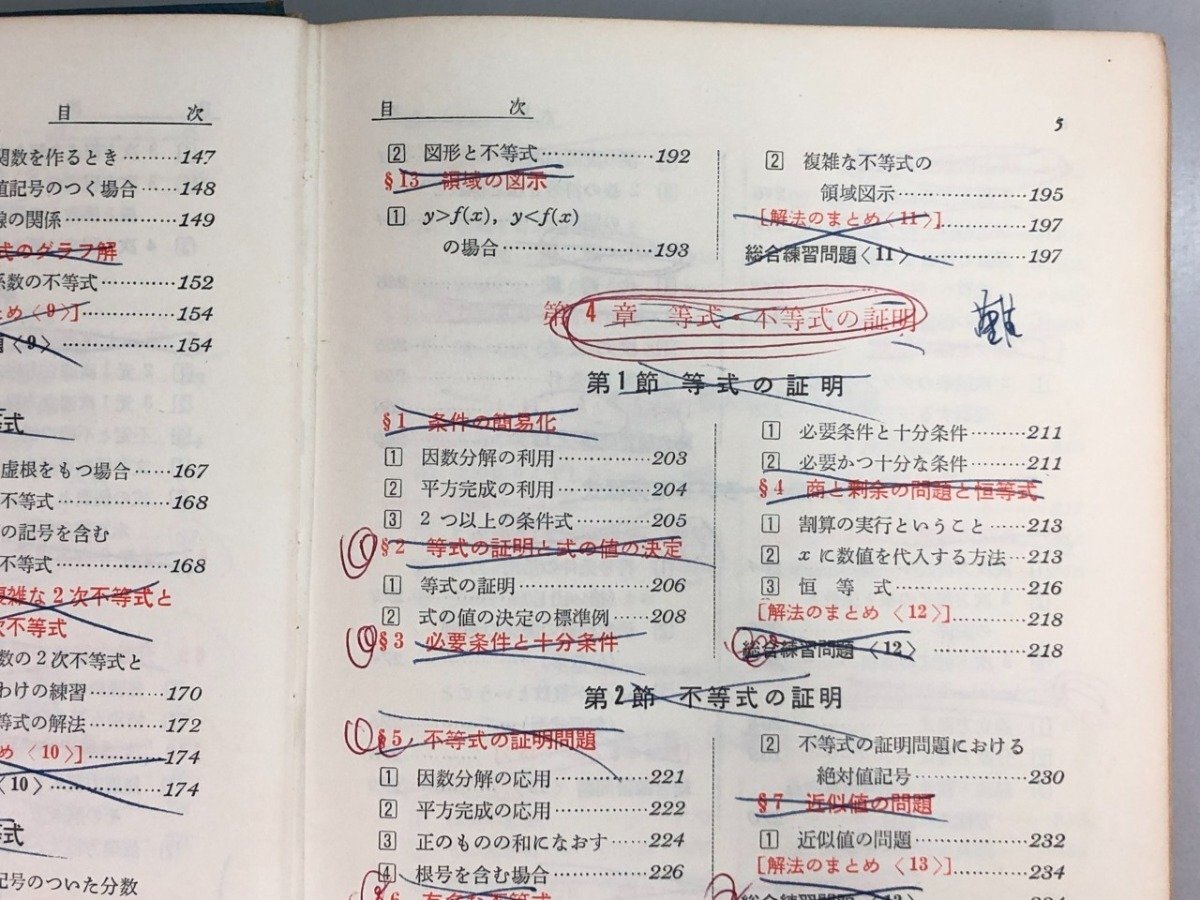 目 次
関数を作るとき………147
値記号のつく場合……148
線の関係………………149
式のグラフ解
係数の不等式…………152
とめ〈9〉]……………154
〈9〉…………………154
等式
虚根をもつ場合………167
不等式…………………168
の記号を含む
不等式…………………168
複雑な2次不等式と
次不等式
数の2次不等式と
わけの練習……………170
等式の解法……………172
とめ〈10〉]……………174
〈10〉…………………174
等式
記号のついた分数
目 次
5
2 図形と不等式………………192
§13 領域の図示
1 y>f(x), y<f(x)
の場合………………193
2 複雑な不等式の
領域図示………………195
[解法のまとめ〈11〉]……………197
総合練習問題〈11〉………………197
第4章 等式・不等式の証明
難
第1節 等式の証明
§1 条件の簡易化
1 因数分解の利用…………203
2 平方完成の利用…………204
3 2つ以上の条件式………205
§2 等式の証明と式の値の決定
1 等式の証明………………206
2 式の値の決定の標準例…208
§3 必要条件と十分条件
1 必要条件と十分条件………211
2 必要かつ十分な条件………211
§4 商と剰余の問題と恒等式
1 割算の実行ということ……213
2 xに数値を代入する方法…213
3 恒等式……………………216
[解法のまとめ〈12〉]……………218
総合練習問題〈12〉………………218
第2節 不等式の証明
§5 不等式の証明問題
1 因数分解の応用…………221
2 平方完成の応用…………222
3 正のものの和になおす……224
4 根号を含む場合…………226
2 不等式の証明問題における
絶対値記号………………230
§7 近似値の問題
1 近似値の問題……………232
[解法のまとめ〈13〉]……………234